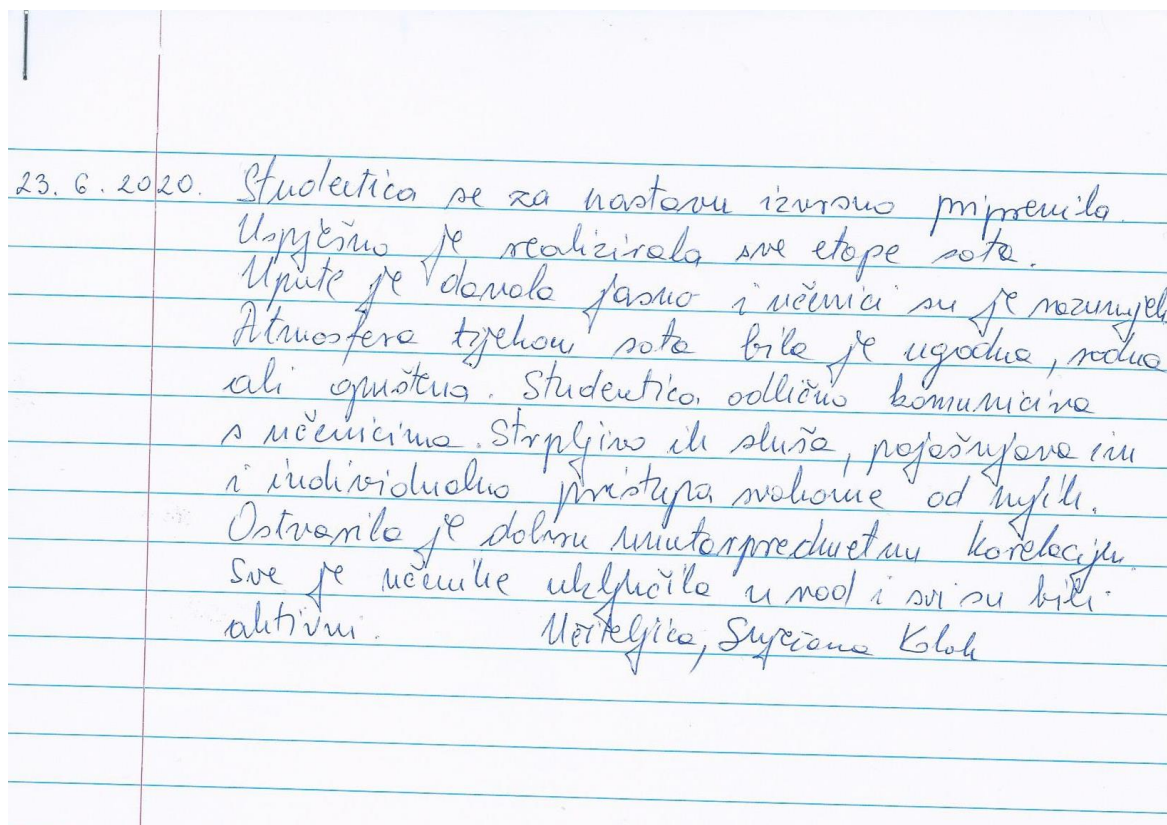 23. 6. 2020. Studentica se za nastavu izvrsno pripremila.
Uspješno je realizirala sve etape sata.
Upute je davala jasno i učenici su je razumjeli
Atmosfera tijekom sata bila je ugodna, radna
ali opuštena. Studentica odlično komunicira
s učenicima. Strpljivo ih sluša, pojašnjava im
i individualno pristupa svakome od njih.
Ostvarila je dobru unutarpredmetnu korelaciju.
Sve je učenike uključila u rad i svi su bili
aktivni. Učiteljica, Snježana